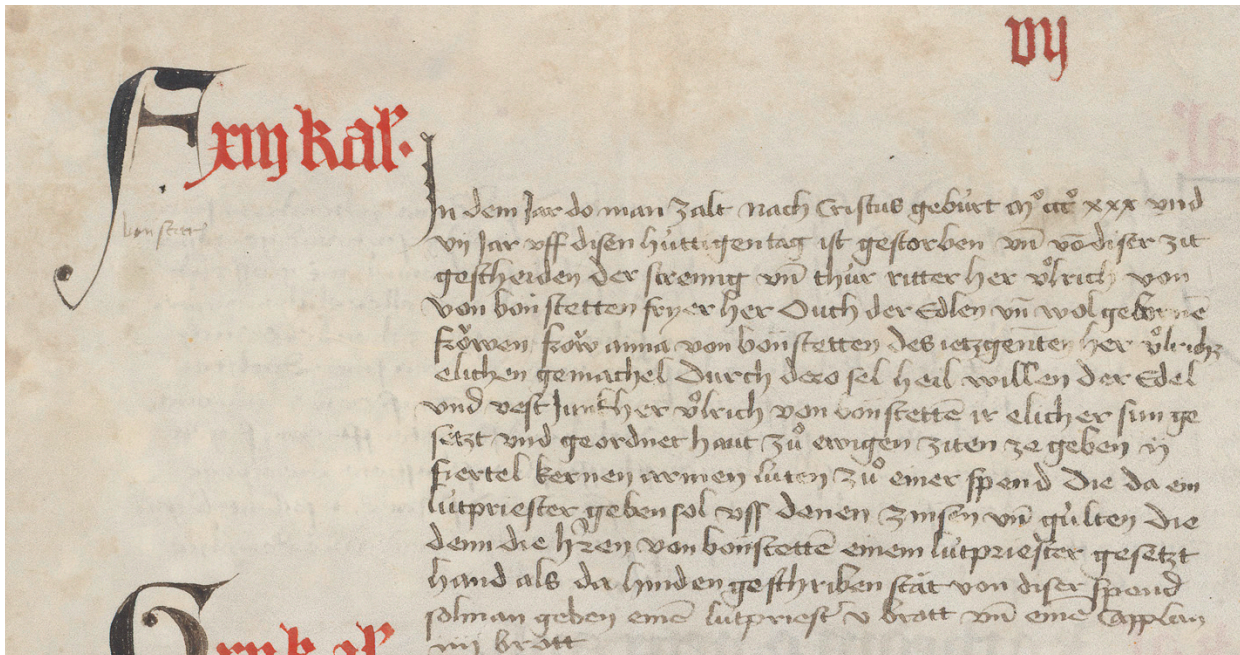 vij
F xiij kal.
bonstetten
In dem Jar do man zalt nach Cristus gebúrt mͦ cccͦ xxx vnd
vij Jar vff disen húttigen tag ist gestorben vn̄ vō diser zit
gescheiden der streinng vn̄ thúr ritter her vͦlrich von
von bonstetten fryer her Ouch der Edlen vn̄ wol gebornē
frowen frow anna von bonstetten des ietzgenten her vͦlrichz
elichen gemachel Durch dero sel heil willen der Edel
vnd vest Junkher vͦlrich von bonstettē ir elicher sun ge
setzt vnd geordnet haut zuͦ ewigen ziten ze geben ij
fiertel kernen armen lúten zuͦ einer spend Die da ein
lútpriester geben sol vff denen zinsen vn̄ gúlten die
denn die hr̄en von bonstettē einem lútpriester gesetzt
hand als da hinden geschriben stät von diser spend
sol man geben einē lutpriest' v brott vn̄ einē Capplan
iiij brott
G kal.